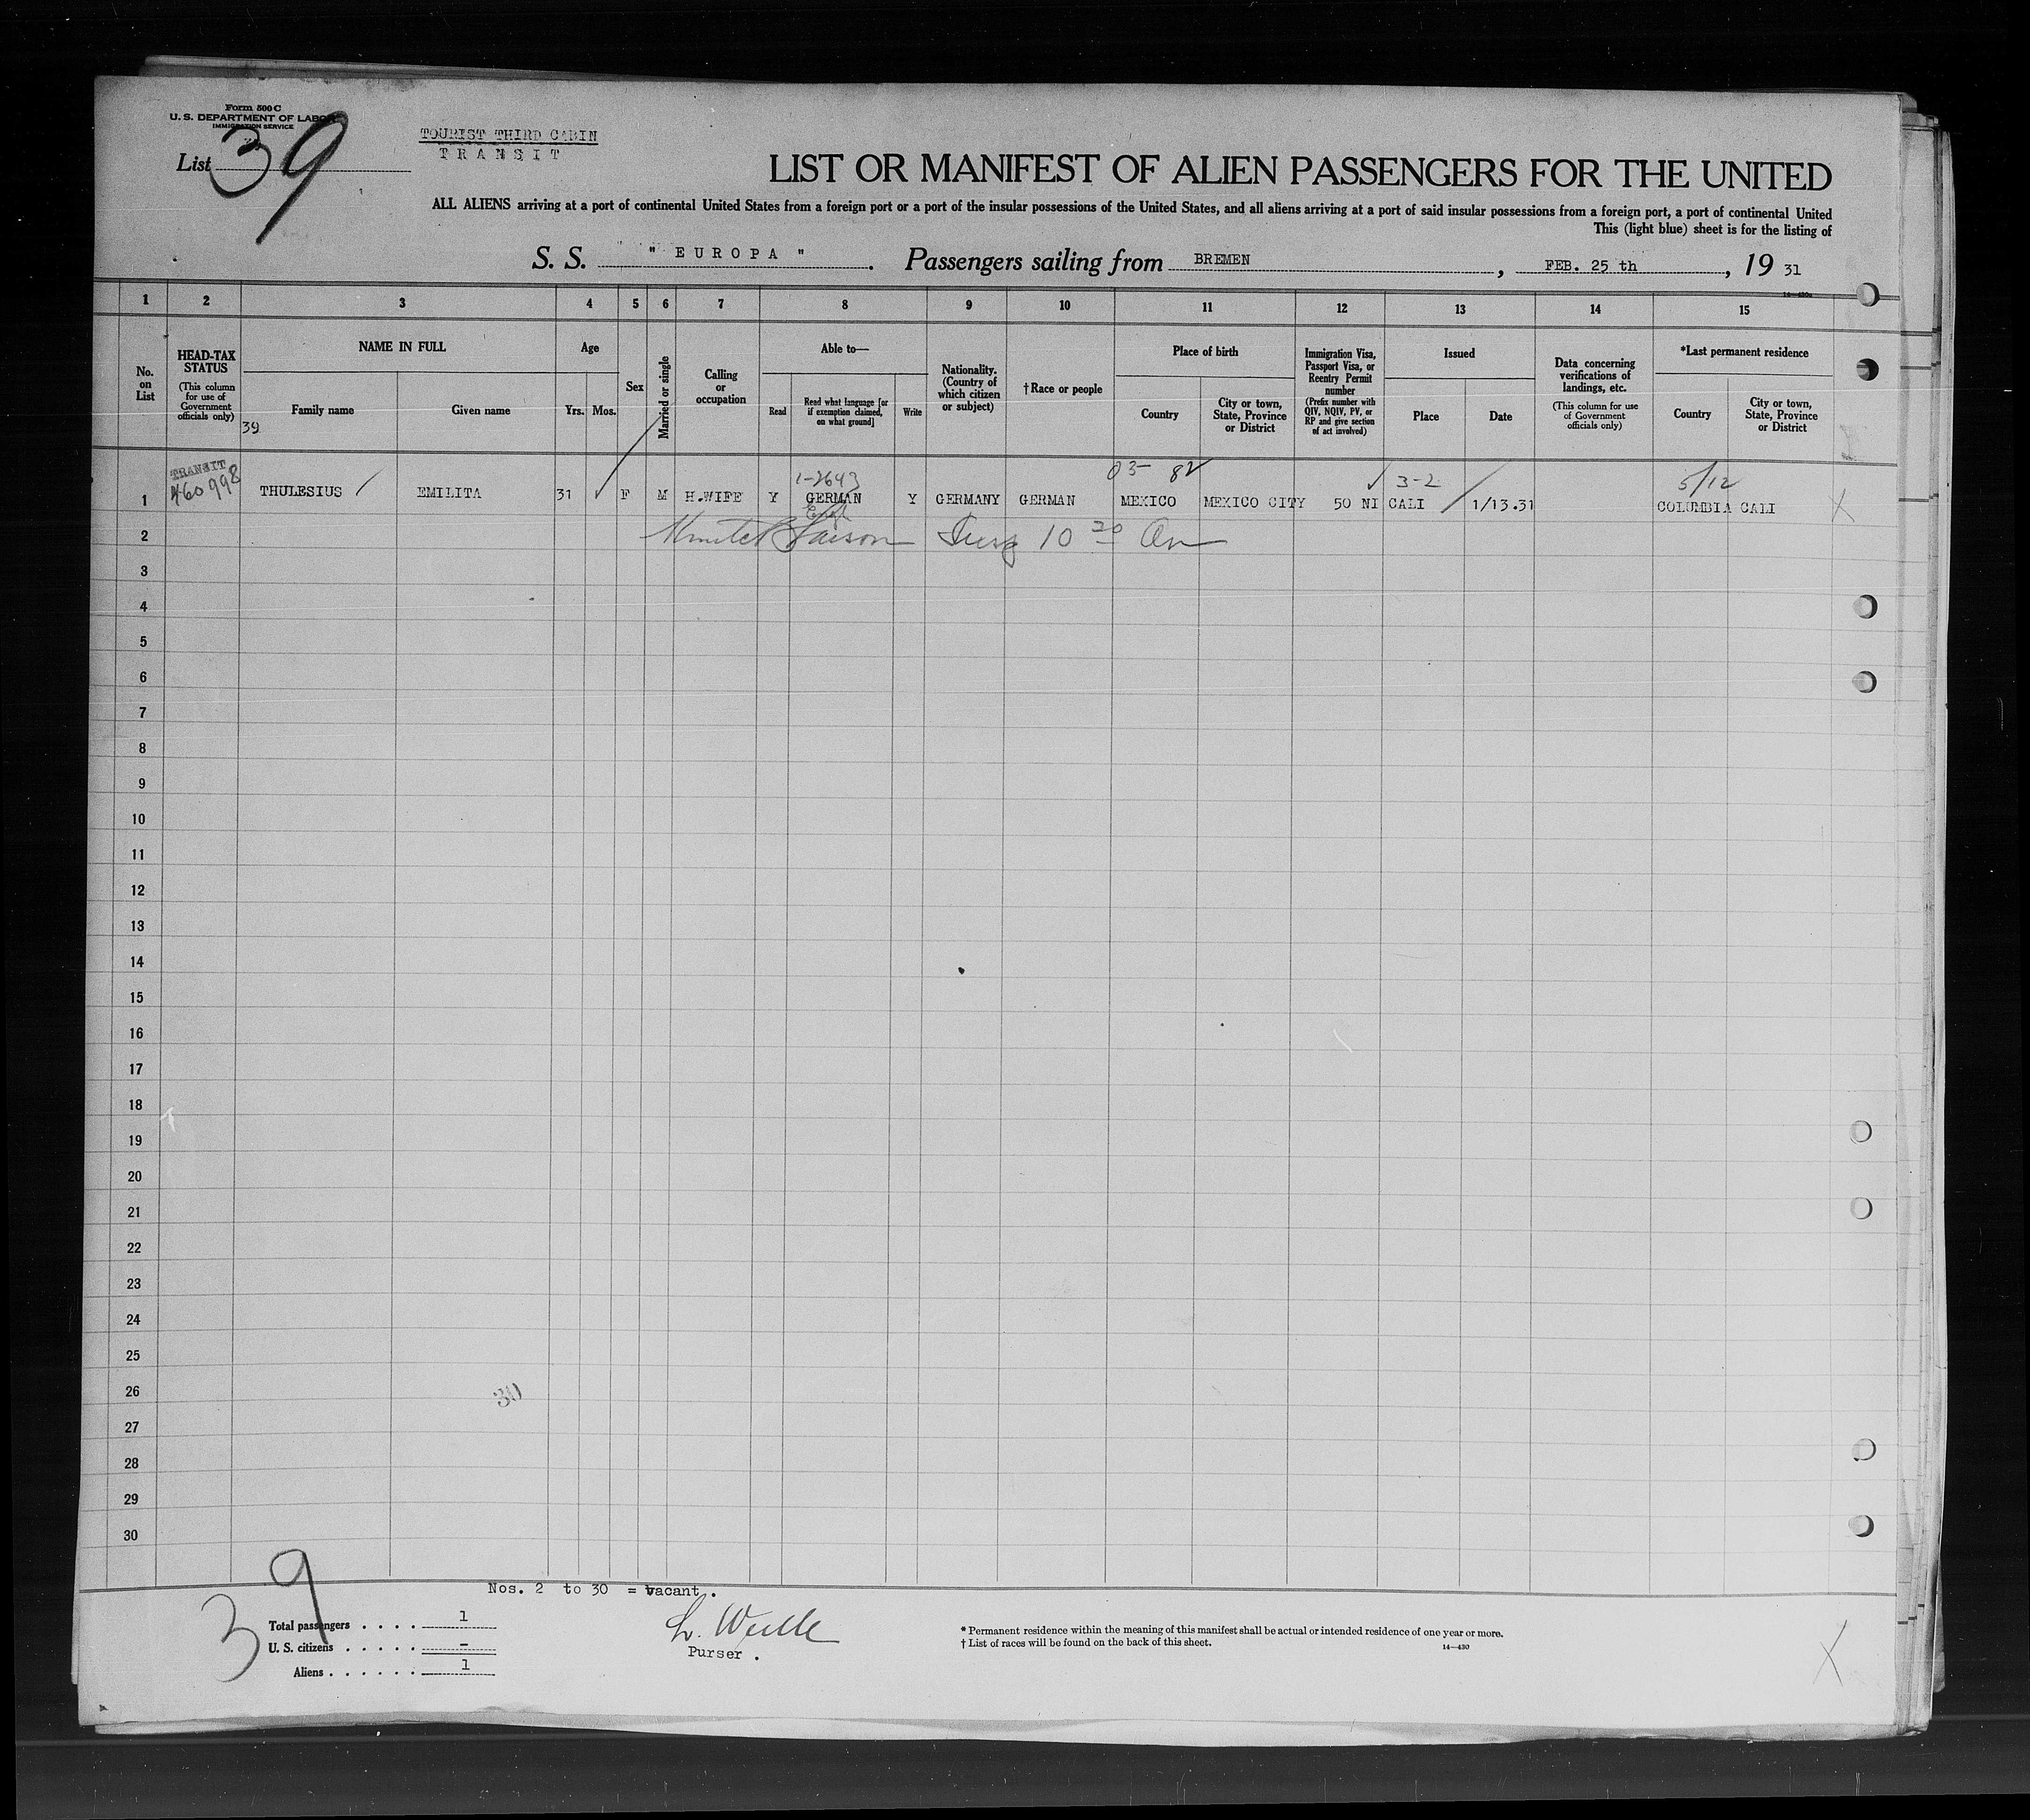 Form 500 C
U. S. DEPARTMENT OF LABOR
IMMIGRATION SERVICE
List 39
TOURIST THIRD CABIN
TRANSIT
LIST OR MANIFEST OF ALIEN PASSENGERS FOR THE UNITED
ALL ALIENS arriving at a port of continental United States from a foreign port or a port of the insular possessions of the United States, and all aliens arriving at a port of said insular possessions from a foreign port, a port of continental United
This (light blue) sheet is for the listing of
S. S. " EUROPA ". Passengers sailing from BREMEN, FEB. 25 th, 19 31
1 2 3 4 5 6 7 8 9 10 11 12 13 14 15
No. on List
HEAD-TAX STATUS
(This column for use of Government officials only)
NAME IN FULL
Family name
Given name
Age
Yrs.
Mos.
Sex
Married or single
Calling or occupation
Able to—
Read
Read what language [or if exemption claimed, on what ground]
Write
Nationality. (Country of which citizen or subject)
†Race or people
Place of birth
Country
City or town, State, Province or District
Immigration Visa, Passport Visa, or Reentry Permit number
(Prefix number with QIV, NQIV, PV, or RP and give section of act involved)
Issued
Place
Date
Data concerning verifications of landings, etc.
(This column for use of Government officials only)
*Last permanent residence
Country
City or town, State, Province or District
39
TRANSIT 1-2643 03- 82 3-2 5/12
1 460998 THULESIUS EMILITA 31 F M H.WIFE Y GERMAN Y GERMANY GERMAN MEXICO MEXICO CITY 50 NI CALI 1/13.31 COLUMBIA CALI
Engl
2 10 30
3
4
5
6
7
8
9
10
11
12
13
14
15
16
17
18
19
20
21
22
23
24
25
26
30
27
28
29
30
Nos. 2 to 30 = vacant.
39
Total passengers . . . . 1
U. S. citizens . . . . . –
Aliens . . . . . . 1
Purser .
* Permanent residence within the meaning of this manifest shall be actual or intended residence of one year or more.
† List of races will be found on the back of this sheet.
14—430